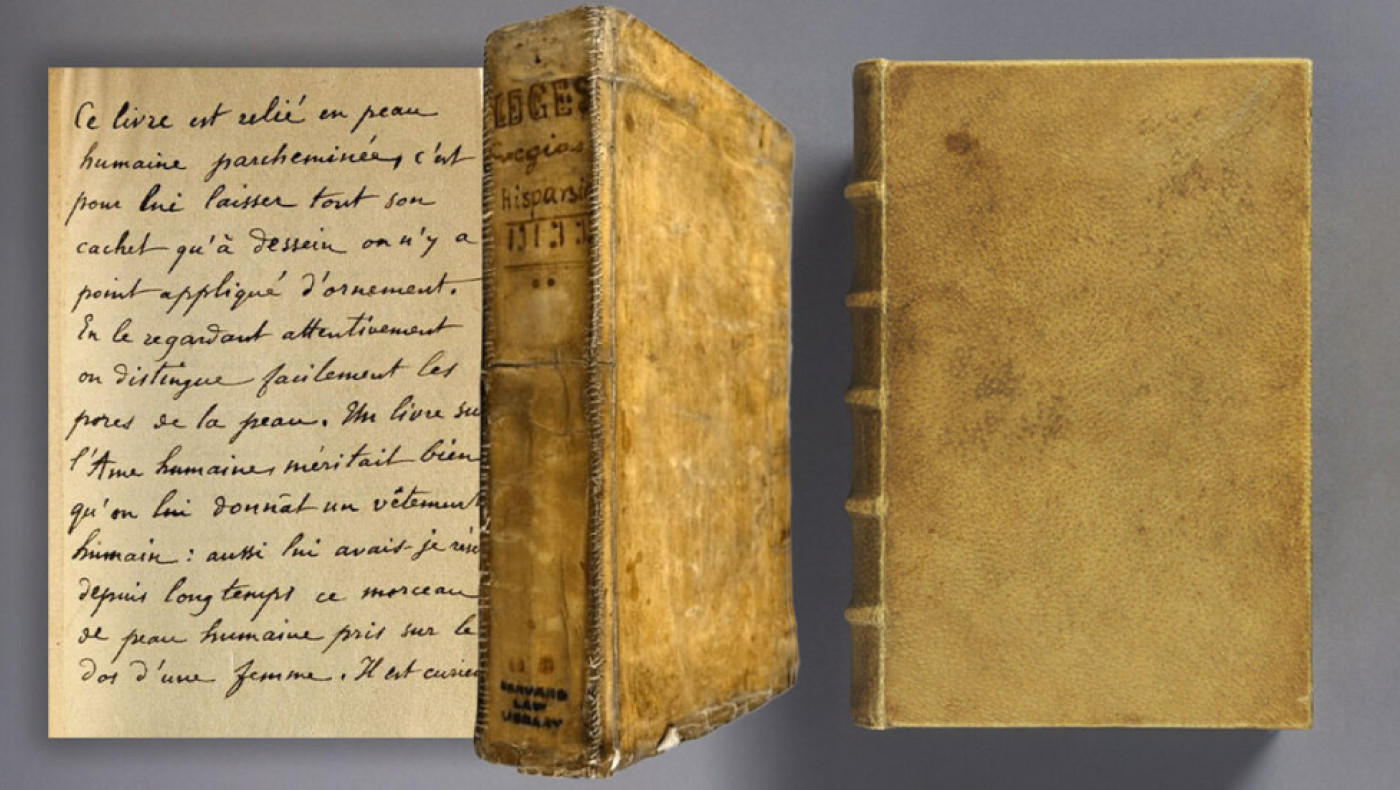 Ce livre est relié en peau
humaine parcheminée, c'est
pour lui laisser tout son
cachet qu'à dessein on n'y a
point appliqué d'ornement.
En le regardant attentivement
on distingue facilement les
pores de la peau. Un livre su
l'Ame humaine, méritait bien
qu'on lui donnât un vêtement
humain : aussi lui avais-je rése
depuis longtemps ce morceau
de peau humaine pris sur le
dos d'une femme. Il est curieu
LOGES
Hispani
HARVARD
LAW
LIBRARY